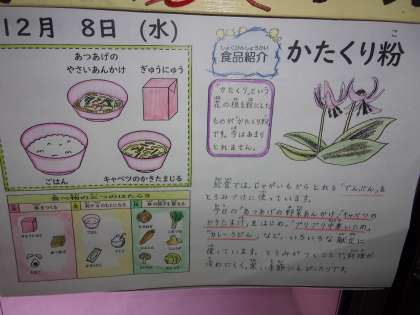 12月 8日 (水)
あつあげの
やさいあんかけ
ぎゅうにゅう
ごはん
キャベツのかきたまじる
しょくひんしょうかい
食品紹介
こ
かたくり粉
「かたくり」という
花の根を粉にした
ものが「かたくり粉」
です。今はあまり
とれません。
給食では、じゃがいもからとれる「でんぷん」を
とろみづけに使っています。
今日の「あつあげの野菜あんかけ」「キャベツの
かきたま汁」をはじめ、「プリプリ中華いため」、
「カレーうどん」など、いろいろな献立に
使っています。とろみがつくことで料理が
冷めにくく、寒い季節にもぴったりです。
食べ物の三つのはたらき